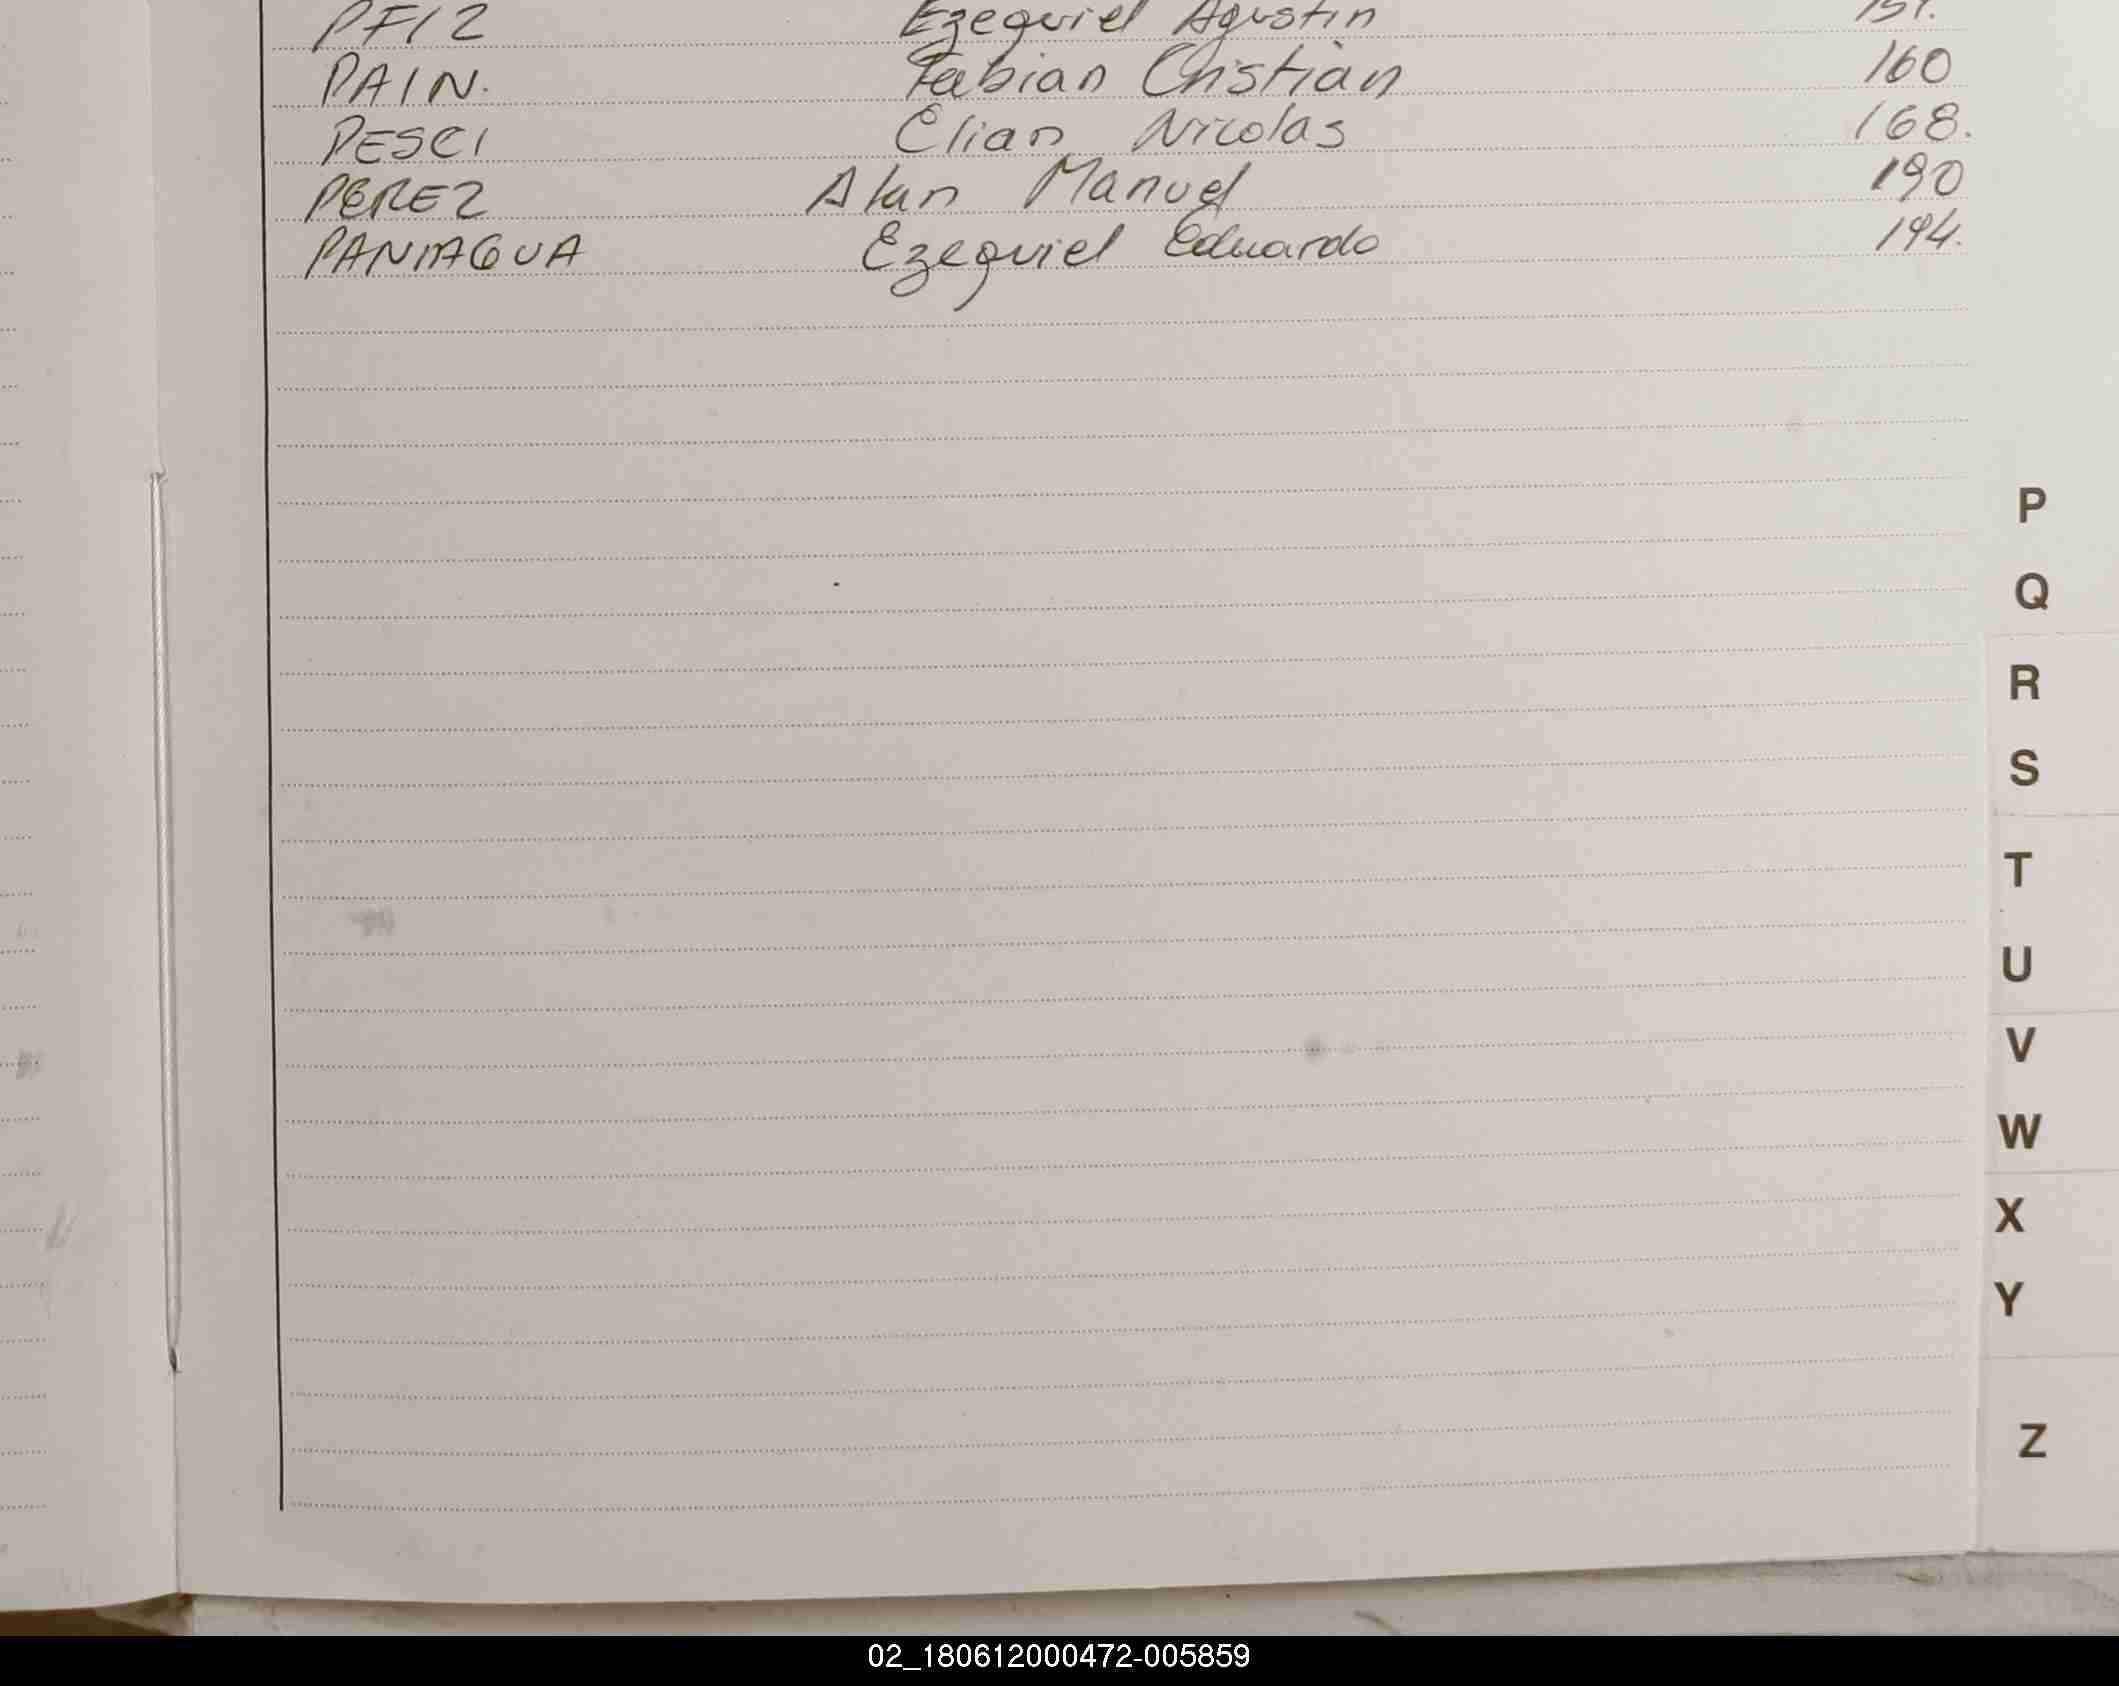 PFIZ Ezequiel Agustin 151.
PAIN. Fabian Cristian 160
PESCI Elian Nicolas 168.
PEREZ Alan Manuel 190
PANIAGUA Ezequiel Eduardo 194.
P
Q
R
S
T
U
V
W
X
Y
Z
02_180612000472-005859